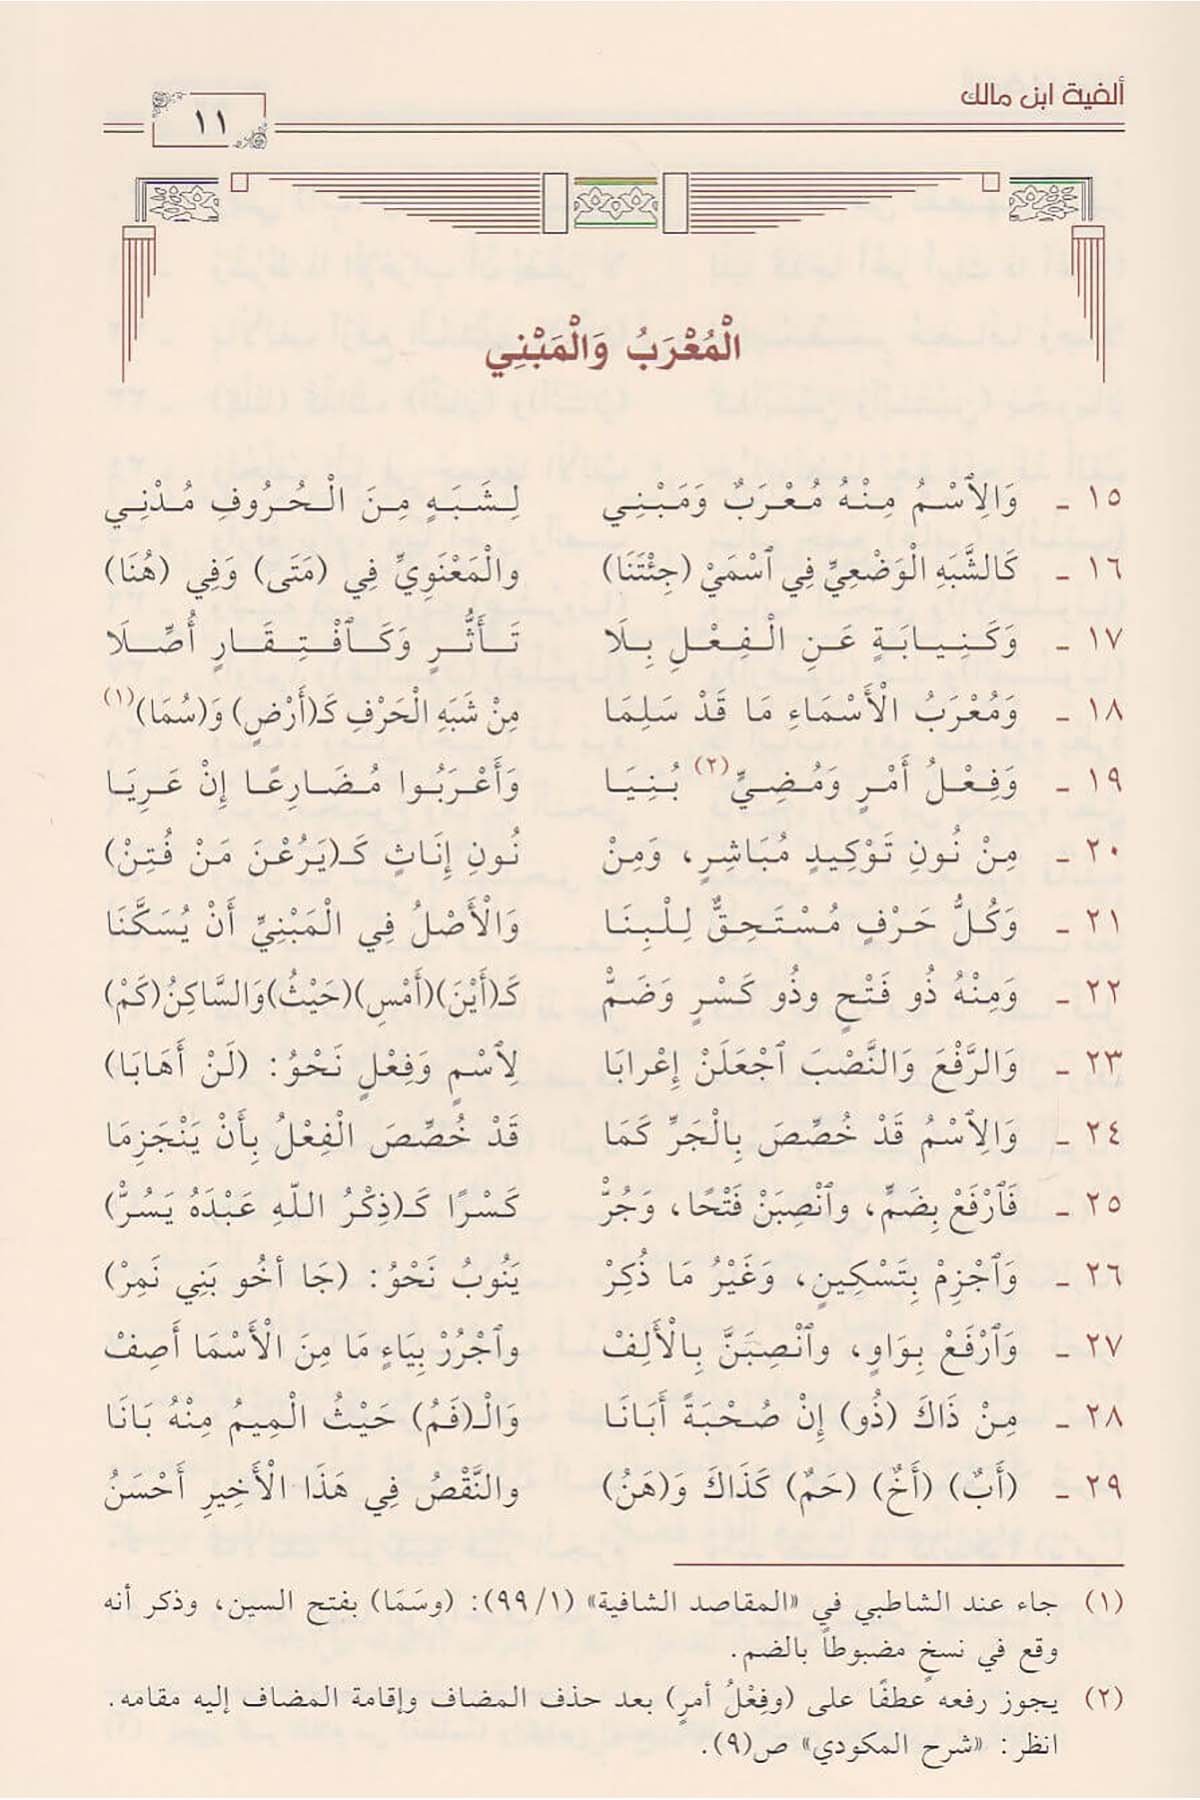 ألفية ابن مالك
١١
الْمُعْرَبُ وَالْمَبْنِي
١٥ ـ وَالِاسْمُ مِنْهُ مُعْرَبٌ وَمَبْنِي لِشَبَهٍ مِنَ الْحُرُوفِ مُدْنِي
١٦ ـ كَالشَّبَهِ الْوَضْعِيِّ فِي ٱسْمَيْ (جِئْتَنَا) والْمَعْنَوِيِّ فِي (مَتَى) وَفِي (هُنَا)
١٧ ـ وَكَنِيابَةٍ عَنِ الْفِعْلِ بِلَا تَأَثُّرٍ وَكَٱفْتِقَارٍ أُصِّلَا
١٨ ـ وَمُعْرَبُ الْأَسْمَاءِ مَا قَدْ سَلِمَا مِنْ شَبَهِ الْحَرْفِ كَـ(أَرْضٍ) وَ(سُمَا)(١)
١٩ ـ وَفِعْلُ أَمْرٍ وَمُضِيٍّ(٢) بُنِيَا وَأَعْرَبُوا مُضَارِعًا إِنْ عَرِيَا
٢٠ ـ مِنْ نُونِ تَوْكِيدٍ مُبَاشِرٍ، وَمِنْ نُونِ إِنَاثٍ كَـ(يَرُعْنَ مَنْ فُتِنْ)
٢١ ـ وَكُلُّ حَرْفٍ مُسْتَحِقٌّ لِلْبِنَا وَالْأَصْلُ فِي الْمَبْنِيِّ أَنْ يُسَكَّنَا
٢٢ ـ وَمِنْهُ ذُو فَتْحٍ وذُو كَسْرٍ وَضَمّْ كَـ(أَيْنَ)(أَمْسِ)(حَيْثُ)وَالسَّاكِنُ(كَمْ)
٢٣ ـ وَالرَّفْعَ وَالنَّصْبَ ٱجْعَلَنْ إِعْرابَا لِٱسْمٍ وَفِعْلٍ نَحْوُ: (لَنْ أَهَابَا)
٢٤ ـ وَالِٱسْمُ قَدْ خُصِّصَ بِالْجَرِّ كَمَا قَدْ خُصِّصَ الْفِعْلُ بِأَنْ يَنْجَزِمَا
٢٥ ـ فَٱرْفَعْ بِضَمٍّ، وٱنْصِبَنْ فَتْحًا، وَجُرّْ كَسْرًا كَـ(ذِكْرُ اللّهِ عَبْدَهُ يَسُرّْ)
٢٦ ـ وَٱجْزِمْ بِتَسْكِينٍ، وَغَيْرُ مَا ذُكِرْ يَنُوبُ نَحْوُ: (جَا أخُو بَنِي نَمِرْ)
٢٧ ـ وَٱرْفَعْ بِوَاوٍ، وٱنْصِبَنَّ بِالْأَلِفْ وٱجْرُرْ بِيَاءٍ مَا مِنَ الْأَسْمَا أَصِفْ
٢٨ ـ مِنْ ذَاكَ (ذُو) إِنْ صُحْبَةً أَبَانَا وَالْـ(فَمُ) حَيْثُ الْمِيمُ مِنْهُ بَانَا
٢٩ ـ (أَبٌ) (أَخٌ) (حَمٌ) كَذَاكَ وَ(هَنُ) والنَّقْصُ فِي هَذَا الْأَخِيرِ أَحْسَنُ
(١) جاء عند الشاطبي في «المقاصد الشافية» (١/ ٩٩): (وسَمَا) بفتح السين، وذكر أنه
وقع في نسخٍ مضبوطاً بالضم.
(٢) يجوز رفعه عطفًا على (وفِعْلُ أمرٍ) بعد حذف المضاف وإقامة المضاف إليه مقامه.
انظر: «شرح المكودي» ص(٩).